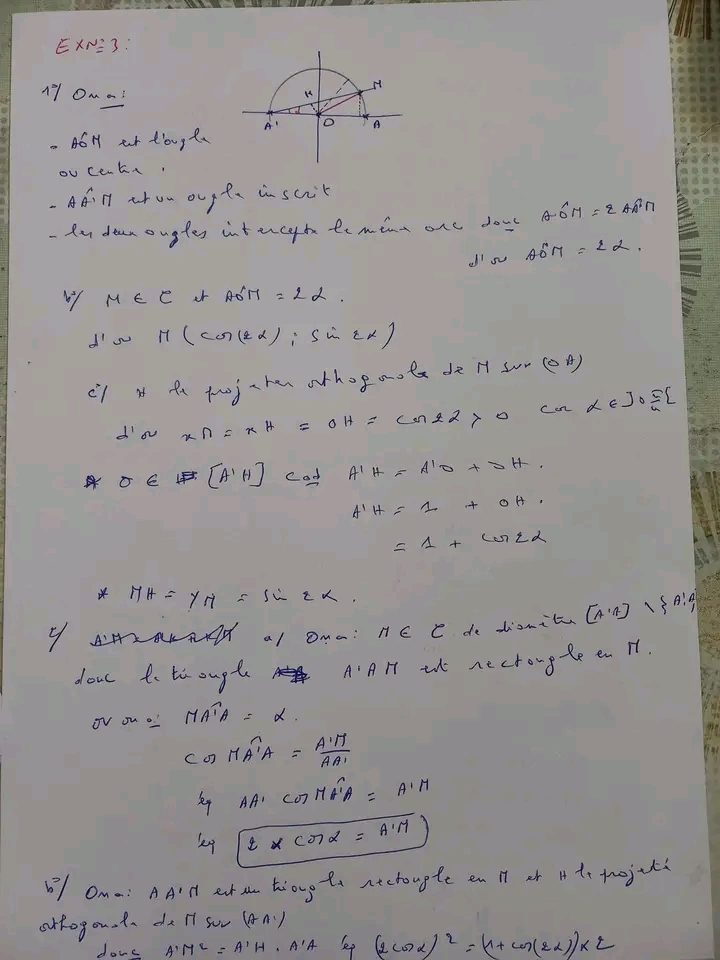 EX N° 3 :
1°/ On a :
M
H
A'
O
A
- AÔM est l'angle
au centre .
- AÂ'M est un angle inscrit
- les deux angles intercepte le même arc donc AÔM = 2AÂ'M
d'où AÔM = 2α .
b°/ M ∈ C et AÔM = 2α .
d'où M ( cos(2α) ; sin 2α)
c°/ H le projeter orthogonale de M sur (OA)
d'où xM = xH = OH = cos2α > 0 car α ∈ ]0 π/4[
* O ∈ [A'H] cad A'H = A'O + OH .
A'H = 1 + OH .
= 1 + cos2α
* MH = yM = sin 2α .
2/ a/ On a : M ∈ C de diamètre [A'A] \ {A',A}
donc le triangle A'AM est rectangle en M.
or on a : MÂ'A = α .
cos MÂ'A = A'M / AA'
éq AA' cos MÂ'A = A'M
éq 2 × cosα = A'M
b°/ On a : AA'M est un triangle rectangle en M et H le projeté
orthogonale de M sur (AA')
donc A'M² = A'H . A'A éq (2cosα)² = (1+cos(2α)) × 2